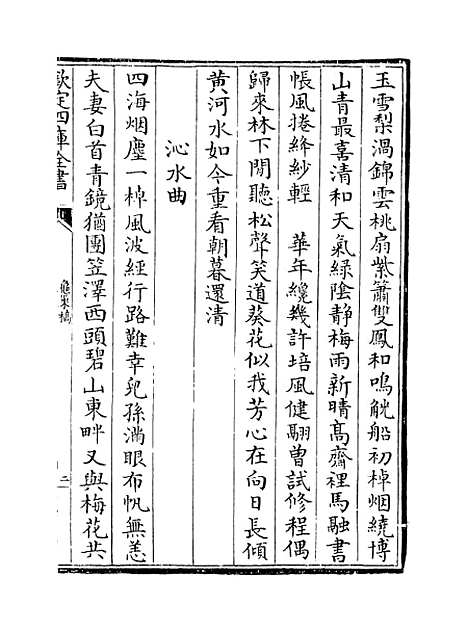 玉雪梨渦錦雲桃扇紫簫雙鳳和鳴觥船初棹烟繞博
山青最喜清和天氣緑陰静梅雨新晴髙齋裡馬融書
帳風捲絳紗輕　華年纔幾許培風健翮曽試修程偶
歸來林下閒聽松聲笑道葵花似我芳心在向日長傾
黄河水如今重看朝暮還清
沁水曲
四海烟塵一棹風波經行路難幸兒孫滿眼布帆無恙
夫妻白首青鏡猶團笠澤西頭碧山東畔又與梅花共
欽定四庫全書
龜巢稿
二